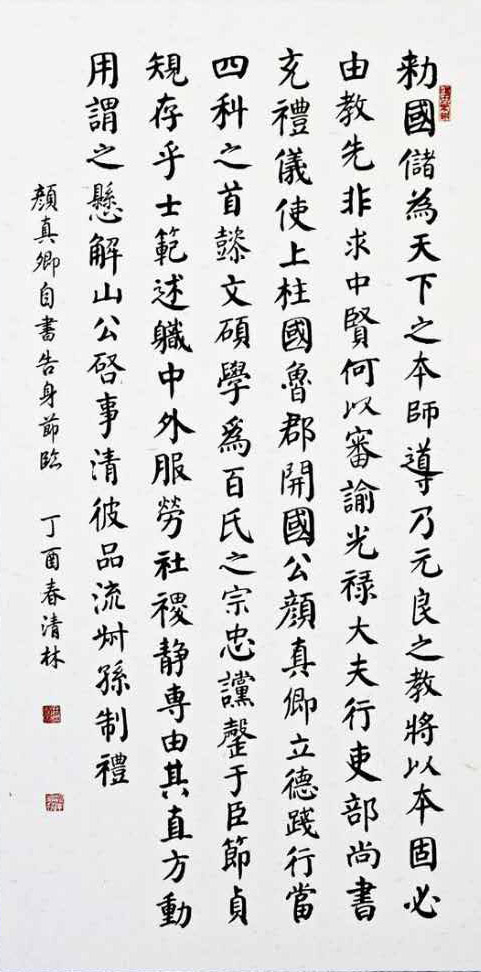 勅國儲為天下之本師導乃元良之教將以本固必
由教先非求中賢何以審諭光禄大夫行吏部尚書
充禮儀使上柱國魯郡開國公顔真卿立德踐行當
四科之首懿文碩學爲百氏之宗忠讜罄于臣節貞
規存乎士範述職中外服勞社稷静専由其直方動
用謂之懸解山公啓事清彼品流叔孫制禮
顔真卿自書告身節臨 丁酉春清林